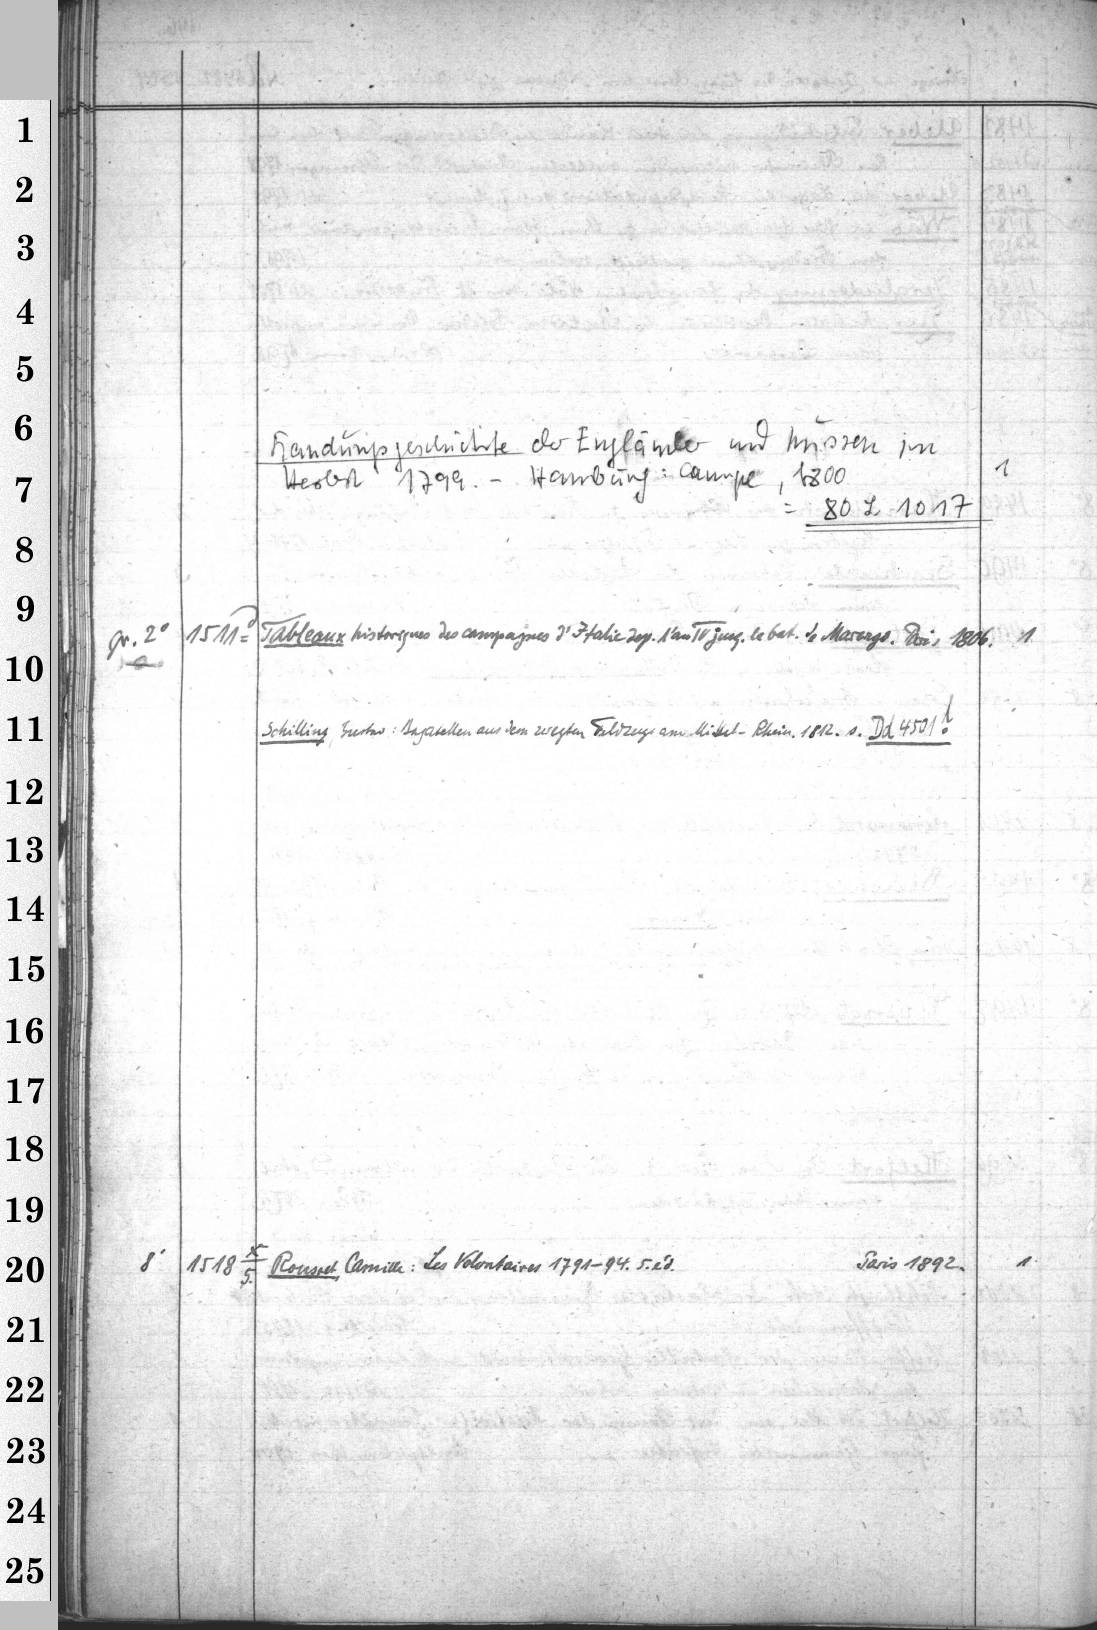 1
2
3
4
5
6
Landungsgeschichte der Engländer und Russen im
7
Herbst 1799. - Hamburg: Campe, 1800 1
= 80 L 1017
8
9
gr. 2° 1511 Tableaux historiques des campagnes d'Italie dep. l'an IV jusq. le bat. de Marengo. Paris 1806. 1
10
11
Schilling, Gustav: Bagatellen aus dem zweyten Feldzuge am Mittel-Rhein. 1812. s. Dd 4501!
12
13
14
15
16
17
18
19
20
8° 1518 x/5. Rousset, Camille: Les Volontaires 1791-94. 5. éd. Paris 1892. 1
21
22
23
24
25